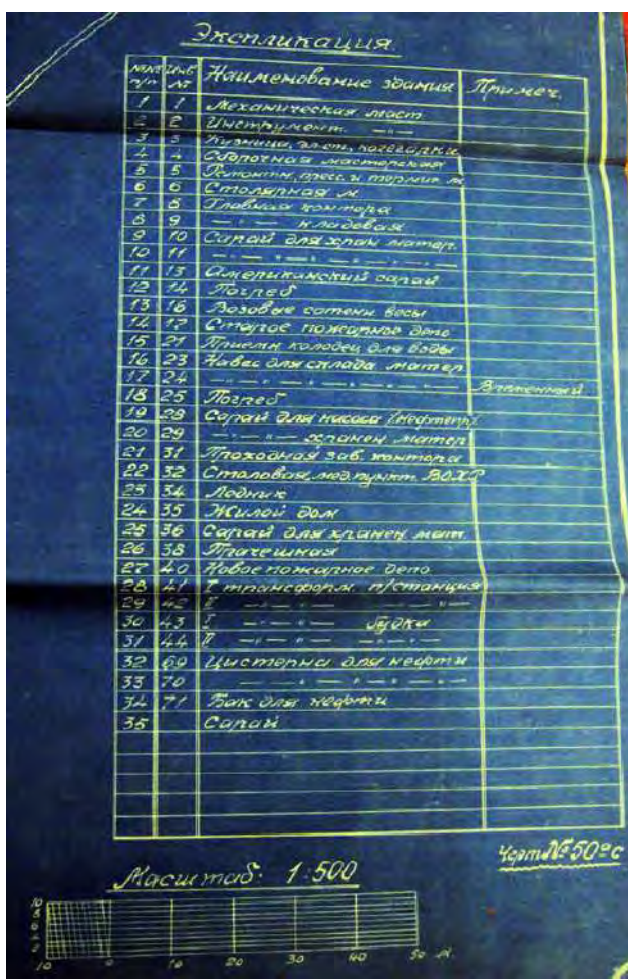 Экспликация.
№№ п/п Инв № Наименование здания Примеч.
1 1 Механическая маст.
2 2 Инструмент. —〃—
3 3 Кузница, эл.ст., кочегарки
4 4 Сборочная мастерская
5 5 Ремонтн., пресс. и термич. м.
6 6 Столярная м.
7 8 Главная контора
8 9 —〃— кладовая
9 10 Сарай для хран. матер.
10 11 —〃—〃—〃—
11 13 Американский сарай
12 14 Погреб
13 16 Возовые сотенн. весы
14 17 Старое пожарное депо
15 21 Приемн. колодец для воды
16 23 Навес для склада матер.
17 24 —〃—〃—〃— Временный
18 25 Погреб
19 28 Сарай для насоса (нефтепр)
20 29 —〃— хранен. матер.
21 31 Проходная зав. контора
22 32 Столовая, мед. пункт. ВОХР
23 34 Ледник
24 35 Жилой дом
25 36 Сарай для хранен. мат.
26 38 Прачешная
27 40 Новое пожарное депо
28 41 I трансформ. п/станция
29 42 II —〃— —〃—
30 43 I —〃— будка
31 44 II —〃— —〃—
32 69 Цистерна для нефти
33 70 —〃—〃—〃—
34 71 Бак для нефти
35 Сарай
Черт. № 50ᵒс
Масштаб: 1:500
10 0 10 20 30 40 50 м.